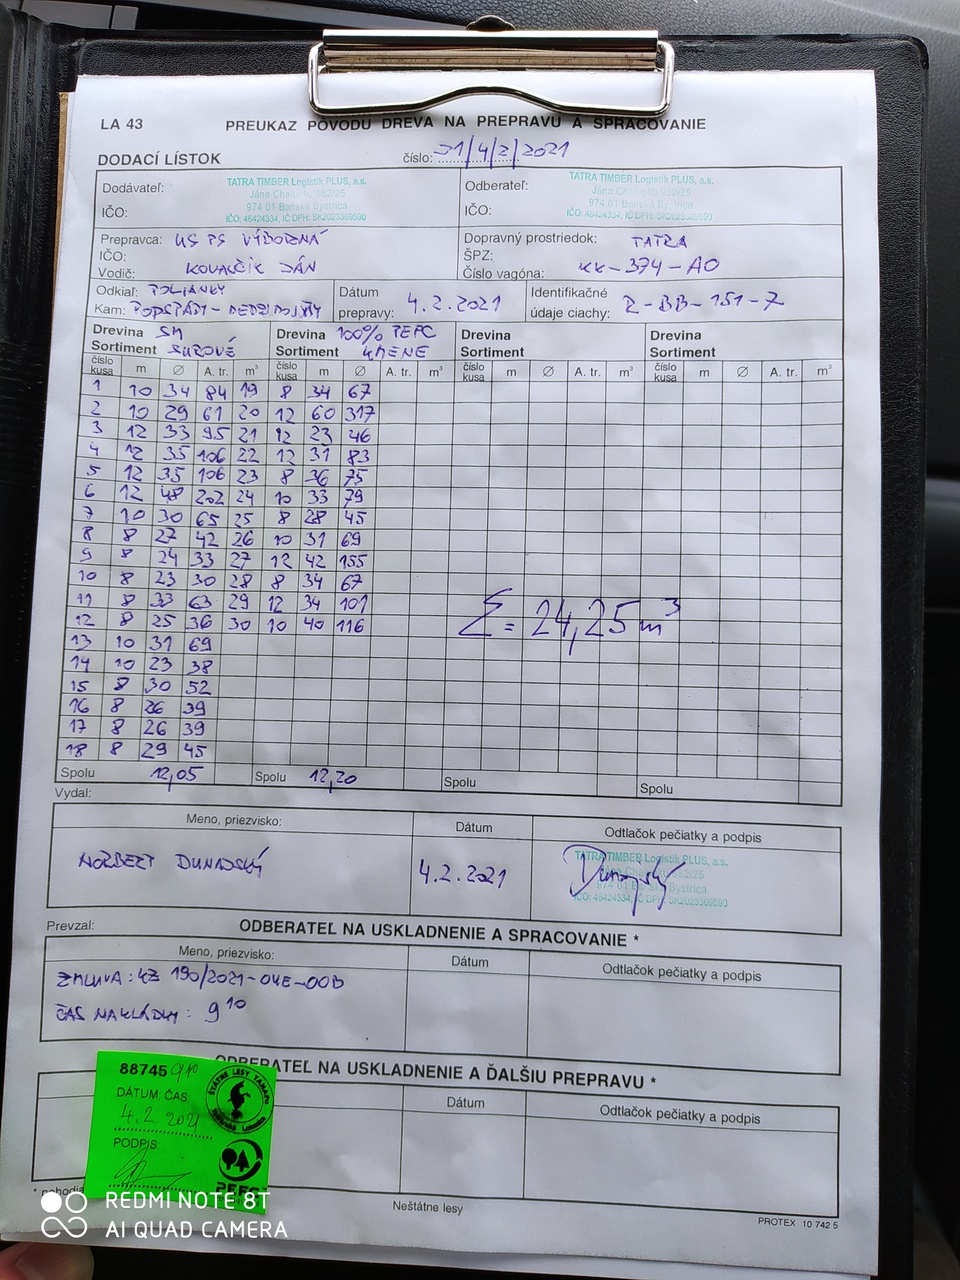 LA 43 PREUKAZ PÔVODU DREVA NA PREPRAVU A SPRACOVANIE
DODACÍ LÍSTOK číslo: 31/4/2/2021
Dodávateľ: TATRA TIMBER Logistik PLUS, a.s. Odberateľ: TATRA TIMBER Logistik PLUS, a.s.
Jána Chalupku 982/25 Jána Chalupku 982/25
974 01 Banská Bystrica 974 01 Banská Bystrica
IČO: IČO: 46424334, IČ DPH: SK2023369590 IČO: IČO: 46424334, IČ DPH: SK2023369590
Prepravca: US PS VÝBORNÁ Dopravný prostriedok: TATRA
IČO: ŠPZ: KK-374-AO
Vodič: KOVALČÍK DÁN Číslo vagóna:
Odkiaľ: POLIANKY Dátum Identifikačné
Kam: PODSPÁDY - MEDZI prepravy: 4.2.2021 údaje ciachy: 2-BB-151-7
Drevina SM Drevina 100% PEFC Drevina Drevina
Sortiment SUROVÉ Sortiment KMENE Sortiment Sortiment
číslo kusa m Ø A. tr. m³ číslo kusa m Ø A. tr. m³ číslo kusa m Ø A. tr. m³ číslo kusa m Ø A. tr. m³
1 10 34 84 19 8 34 67
2 10 29 61 20 12 60 317
3 12 33 95 21 12 23 46
4 12 35 106 22 12 31 83
5 12 35 106 23 8 36 75
6 12 48 202 24 10 33 79
7 10 30 65 25 8 28 45
8 8 27 42 26 10 31 69
9 8 24 33 27 12 42 155
10 8 23 30 28 8 34 67
11 8 33 63 29 12 34 101
12 8 25 36 30 10 40 116
Σ = 24,25 m³
13 10 31 69
14 10 23 38
15 8 30 52
16 8 26 39
17 8 26 39
18 8 29 45
Spolu 12,05 Spolu 12,20 Spolu Spolu
Vydal:
Meno, priezvisko: Dátum Odtlačok pečiatky a podpis
NORBERT DUNAJSKÝ 4.2.2021 TATRA TIMBER Logistik PLUS, a.s.
Jána Chalupku 982/25
974 01 Banská Bystrica
IČO: 46424334, IČ DPH: SK2023369590
Prevzal: ODBERATEĽ NA USKLADNENIE A SPRACOVANIE *
Meno, priezvisko: Dátum Odtlačok pečiatky a podpis
ZMLUVA: KZ 190/2021-OVE-OOD
ČAS NAKLÁDKY: 9¹⁰
ODBERATEĽ NA USKLADNENIE A ĎALŠIU PREPRAVU *
Dátum Odtlačok pečiatky a podpis
88745 9¹⁰
DÁTUM, ČAS:
4.2.2021
PODPIS:
ŠTÁTNE LESY TANAPU
PEFC
Neštátne lesy
PROTEX 10 742 5
REDMI NOTE 8T
AI QUAD CAMERA